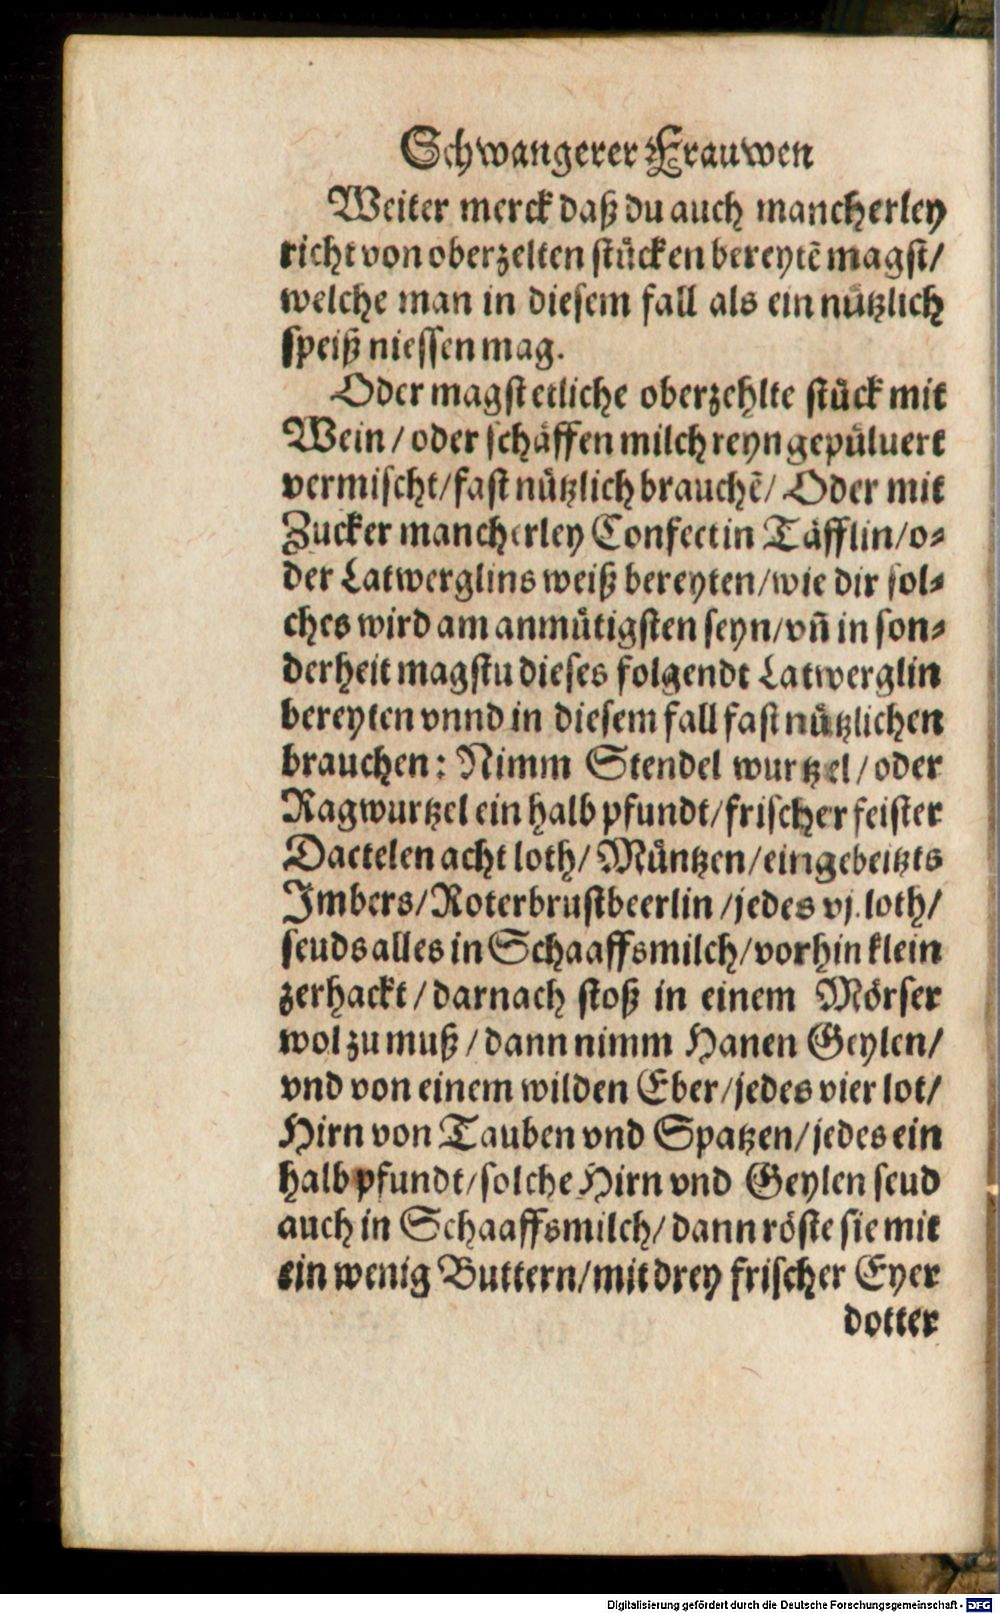 Schwangerer Frauwen
Weiter merck daß du auch mancherley
richt von oberzelten stücken bereytē magst/
welche man in diesem fall als ein nützlich
speiß niessen mag.
Oder magst etliche oberzehlte stück mit
Wein/ oder schäffen milch reyn gepüluert
vermischt/ fast nützlich brauchē/ Oder mit
Zucker mancherley Confect in Täfflin/ o⸗
der Latwerglins weiß bereyten/ wie dir sol⸗
ches wird am anmütigsten seyn/ vñ in son⸗
derheit magstu dieses folgendt Latwerglin
bereyten vnnd in diesem fall fast nützlichen
brauchen: Nimm Stendel wurtzel/ oder
Ragwurtzel ein halb pfundt/ frischer feister
Dactelen acht loth/ Müntzen/ eingebeitzts
Imbers/ Roterbrustbeerlin/ jedes vj. loth/
seuds alles in Schaaffsmilch/ vorhin klein
zerhackt/ darnach stoß in einem Mörser
wol zu muß/ dann nimm Hanen Geylen/
vnd von einem wilden Eber/ jedes vier lot/
Hirn von Tauben vnd Spatzen/ jedes ein
halb pfundt/ solche Hirn vnd Geylen seud
auch in Schaaffsmilch/ dann röste sie mit
ein wenig Buttern/ mit drey frischer Eyer
dotter
Digitalisierung gefördert durch die Deutsche Forschungsgemeinschaft - DFG